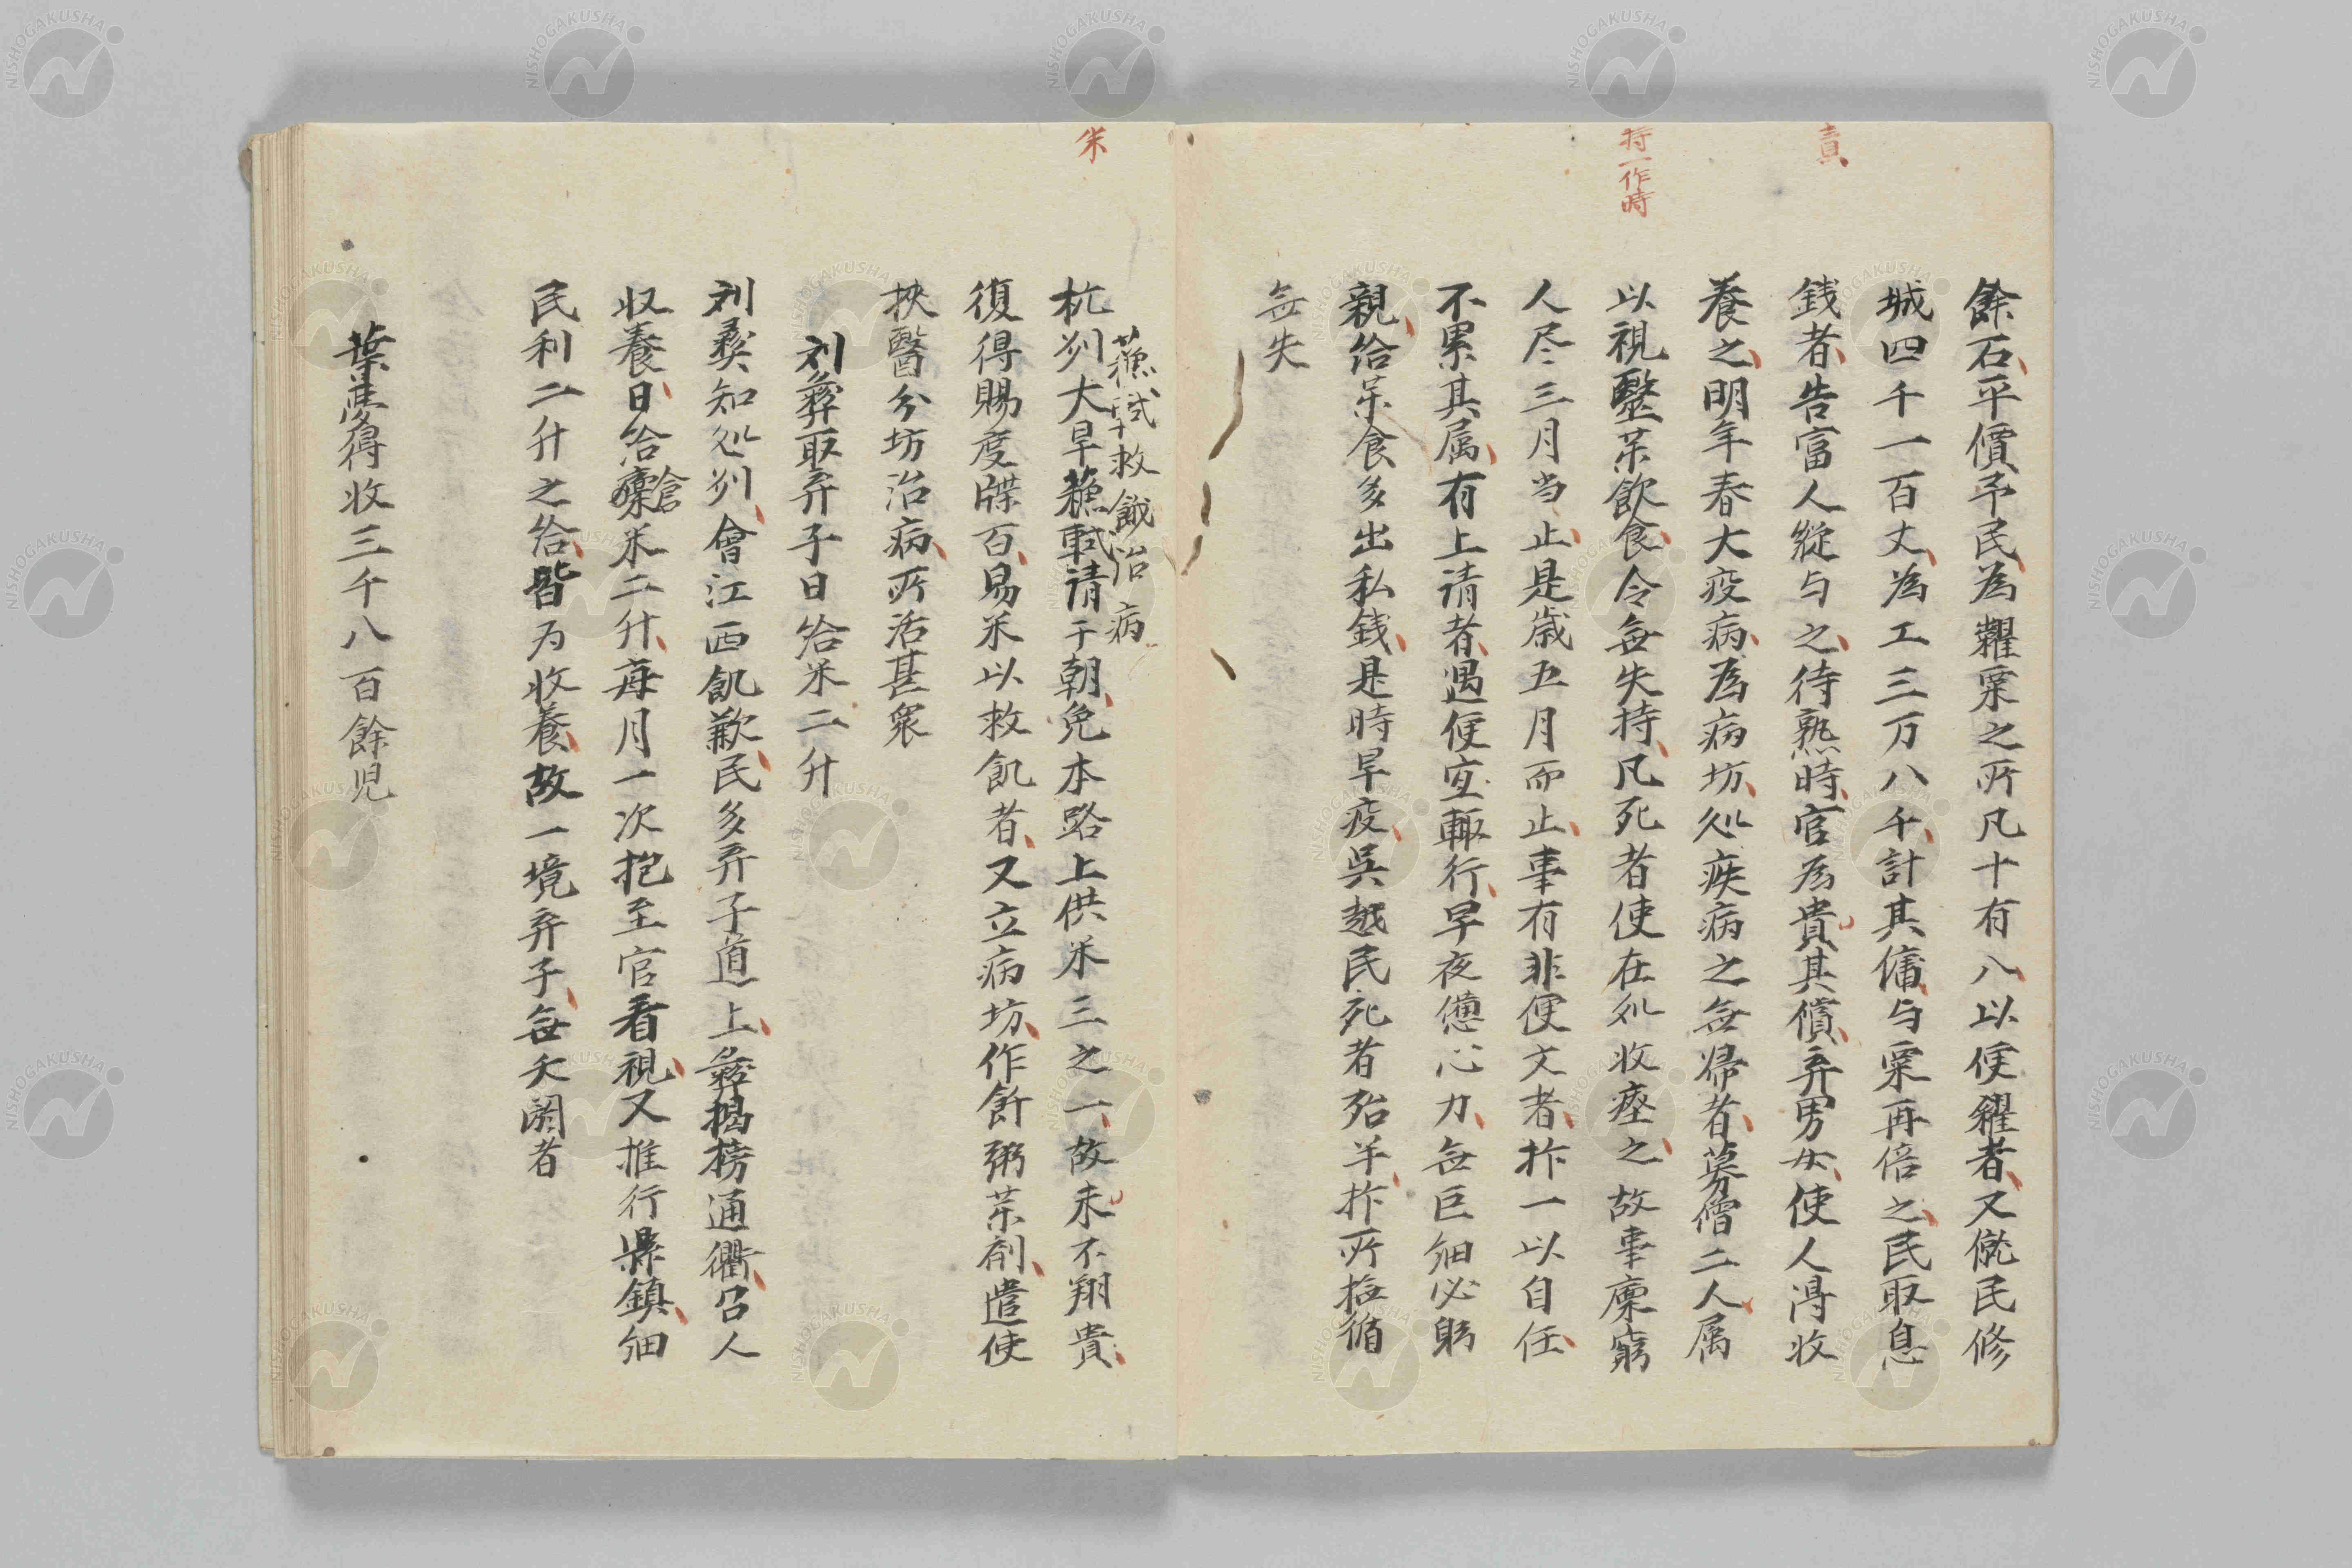 責
特一作時
餘石平價予民為糶粟之所凡十有八以便糴者又僦民修
城四千一百丈為工三万八千計其傭与粟再倍之民取息
銭者告富人縦与之待熟時官為貴其償弃男女使人得収
養之明年春大疫病為病坊処疾病之無帰者募僧二人属
以視醫薬飲食令無失持凡死者使在処收瘞之故事廩窮
人尽三月当止是歳五月而止事有非便文者抃一以自任
不累其属有上请者遇便宜輙行早夜憊心力無巨細必躬
親給薬食多出私銭是時旱疫呉越民死者殆半抃所撫循
無失
米
蘓軾救餓治病
杭州大旱蘓軾请于朝免本路上供米三之一故未不翔貴
復得賜度牒百易米以救飢者又立病坊作飦粥薬剤遣使
挾醫分坊治病所活甚衆
刘彜取弃子日給米二升
刘彜知処州會江西飢歉民多弃子道上彜揭榜通衢召人
収養日給廪倉米二升每月一次抱至官看視又推行縣鎮細
民利二升之給皆为收養故一境弃子無夭閼者
葉夢得收三千八百餘児
NISHOGAKUSHA